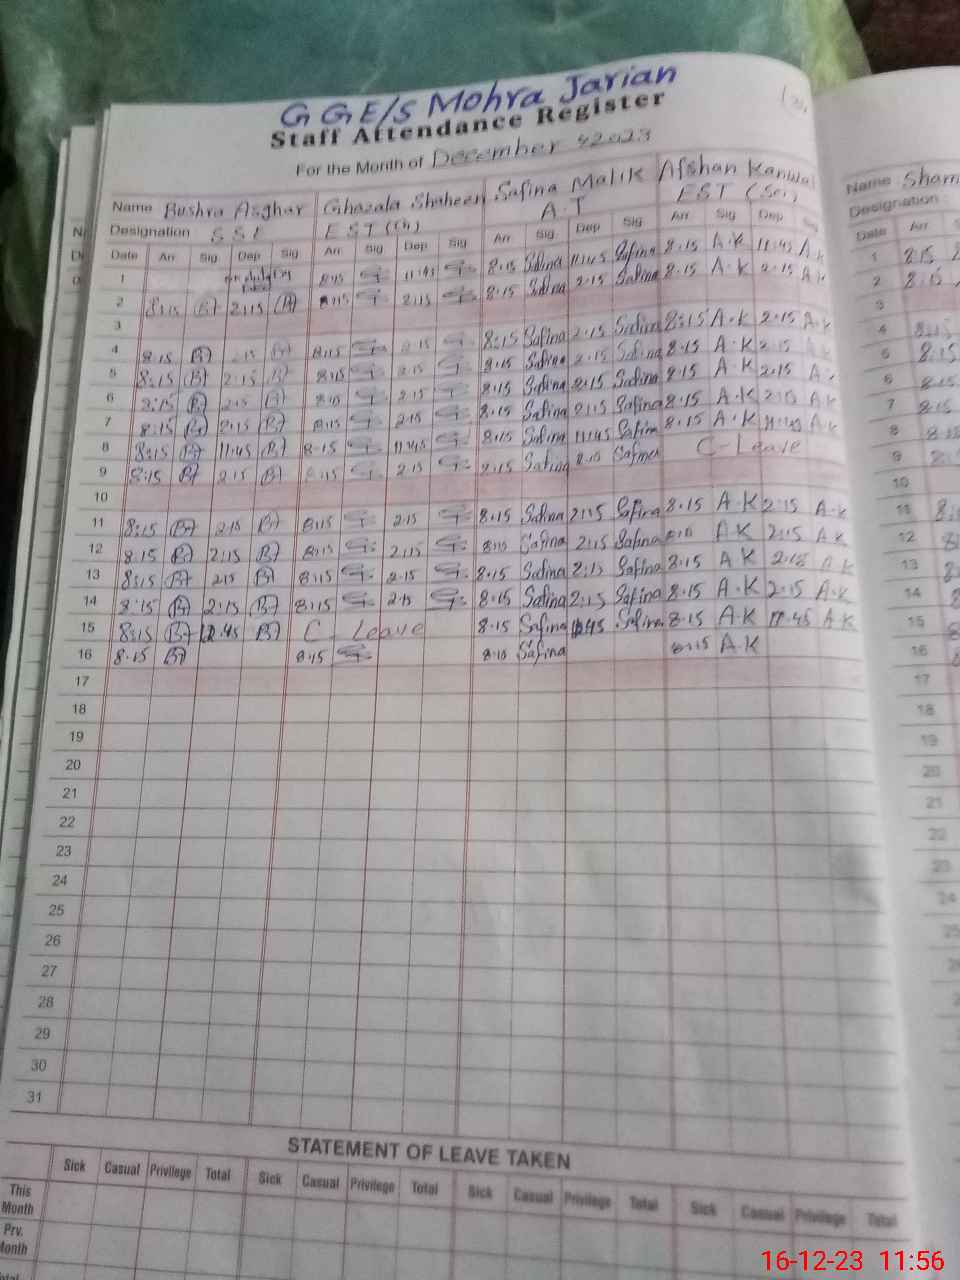 G GE/S Mohra Jarian
Staff Attendance Register
For the Month of December 2023
Name Bushra Asghar Ghazala Shaheen Safina Malik Afshan Kanwal
Designation SSE EST (Ch) A.T EST (Sci)
Date Arr Sig Dep Sig Arr Sig Dep Sig Arr Sig Dep Sig Arr Sig Dep
1 8:15 11:45 8.15 Safina 11:45 Safina 8.15 A.K 11.45 A.K
2 8:15 B 2:15 B 8:15 2:15 8.15 Safina 2.15 Safina 8.15 A.K 2.15 A.K
3
4 8:15 B 2.15 B 8:15 2.15 8:15 Safina 2.15 Safina 8:15 A.K 2.15 A.K
5 8:15 B 2.15 B 8:15 2.15 8.15 Safina 2.15 Safina 8.15 A.K 2.15
6 8:15 B 2.15 B 8:15 2.15 8.15 Safina 2.15 Safina 8.15 A.K 2.15 A.K
7 8:15 B 2.15 B 8:15 2.15 8.15 Safina 2:15 Safina 8.15 A.K 2.15 A.K
8 8:15 B 11.45 B 8.15 11.45 8.15 Safina 11:45 Safina 8.15 A.K 11.45 A.K
9 8:15 B 2.15 B 8:15 2.15 8.15 Safina 2.15 Safina C-Leave
10
11 8:15 B 2.15 B 8:15 2.15 8.15 Safina 2:15 Safina 8.15 A.K 2.15 A.K
12 8.15 B 2:15 B 8:15 2:15 8:15 Safina 2:15 Safina 8:15 A.K 2:15 A.K
13 8:15 B 2.15 B 8:15 2.15 8.15 Safina 2:15 Safina 8.15 A.K 2.15 A.K
14 8:15 B 2:15 B 8:15 2.15 8.15 Safina 2:15 Safina 8.15 A.K 2.15 A.K
15 8:15 B 12.45 B C-Leave 8.15 Safina Safina 8.15 A.K A.K
16 8.15 B 8:15 8:15 Safina 8:15 A.K
17
18
19
20
21
22
23
24
25
26
27
28
29
30
31
STATEMENT OF LEAVE TAKEN
Sick Casual Privilege Total Sick Casual Privilege Total Sick Casual Privilege Total Sick Casual Privilege Total
This
Month
Prv.
Month
Name Sham
Designation
Date Arr
1 8:15
2 8:15
3
4 8:15
5 8:15
6 8:15
7 8:15
8
9
10
11
12
13
14
15
16
17
18
19
20
21
22
23
24
25
16-12-23 11:56